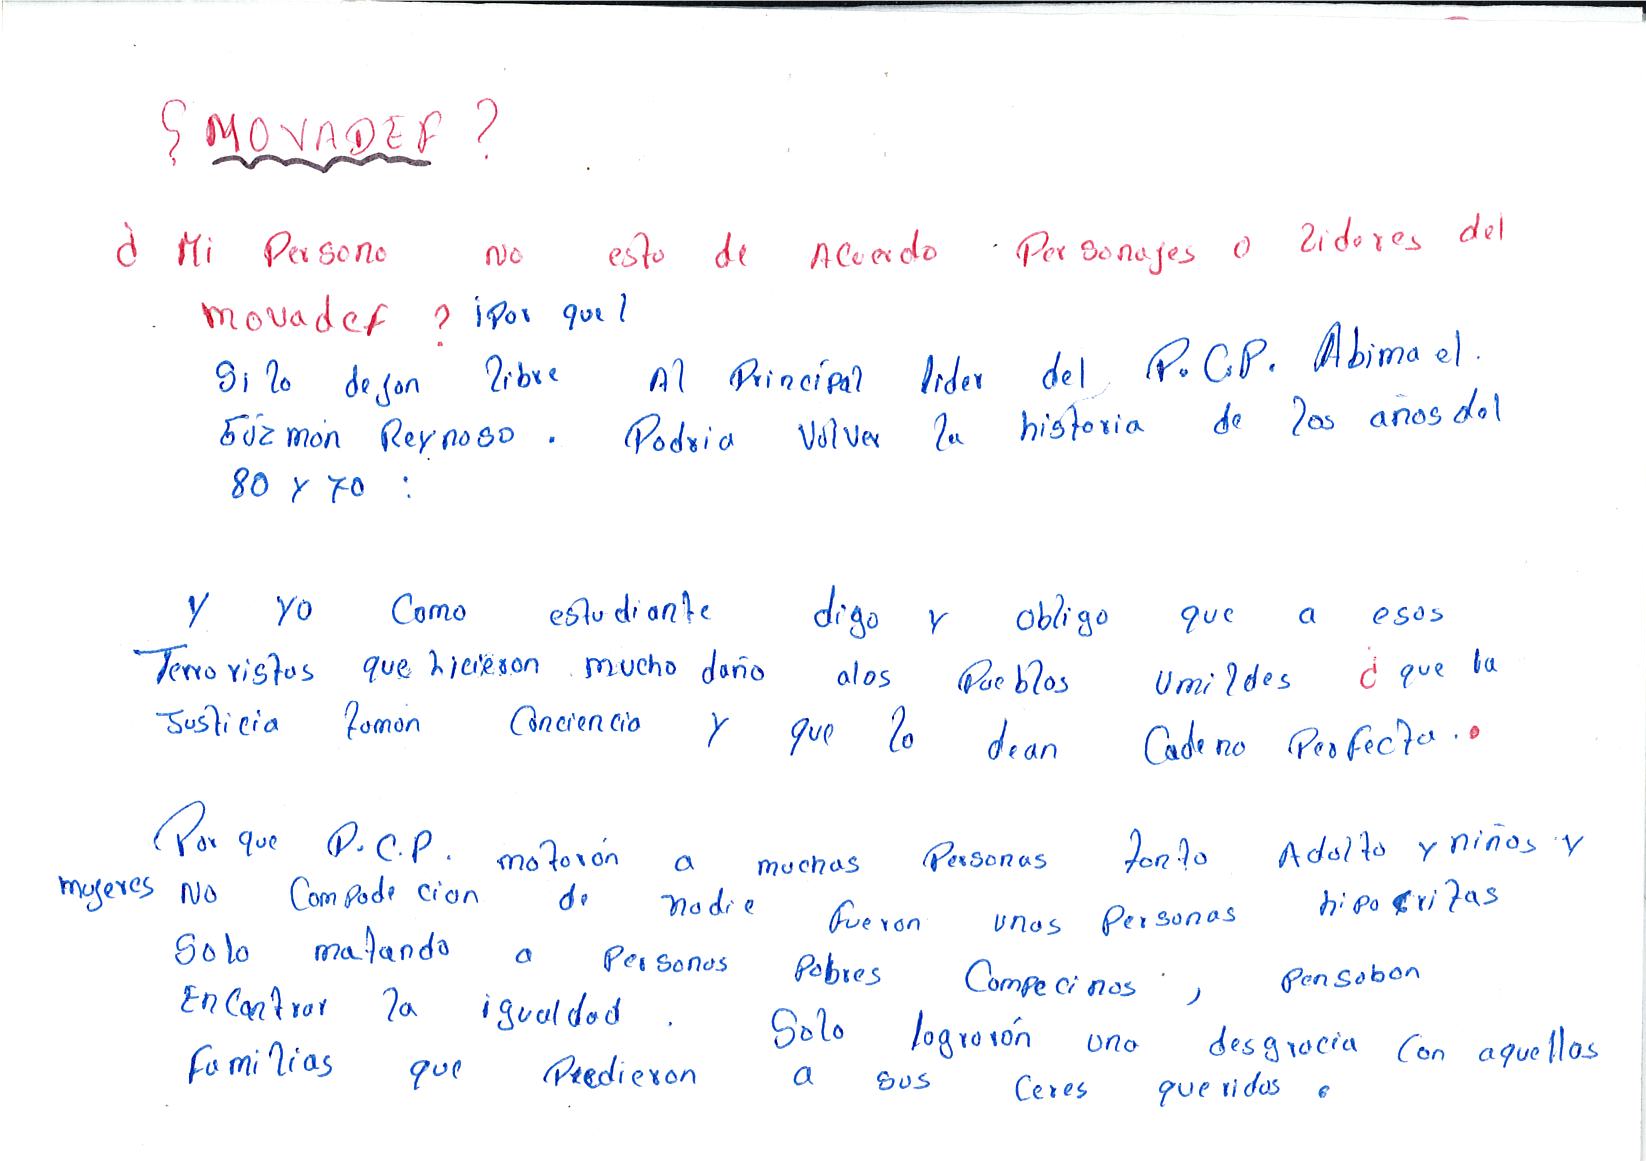 ¿ MOVADEF ?
¿ Mi Persona no esta de Acuerdo Personajes o lideres del
movadef ? ¡Por que!
Si lo dejan libre Al Principal lider del P.C.P. Abimael.
Gúzmán Reynoso. Podria Volver la historia de los años del
80 y 70 :
Y Yo Como estudiante digo y obligo que a esos
Terroristas que hicierón mucho daño alos Pueblos Umildes ¿ que la
Justicia toman Conciencia y que lo dean Cadena Perfecta.
Por que P.C.P. matarón a muchas Personas tanto Adolto y niños y
mujeres No Compade cion de nadie fueron unas Personas hipocritas
Solo matando a Personas Pobres Compecinos, pensaban
EnContrar la igualdad. Solo lograrón una desgracia Con aquellas
familias que Predieron a sus Ceres queridos.